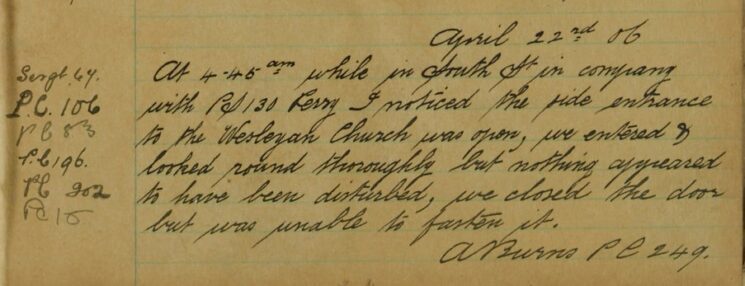 April 22nd 06
Sergt. 64.
P.C. 106
PC 83
P.C 196.
PC 202
PC 15
At 4-45 am while in South St in company
with PS 130 Ferry I noticed the side entrance
to the Wesleyan Church was open, we entered &
looked round thoroughly but nothing appeared
to have been disturbed, we closed the door
but was unable to fasten it.
A Burns P C 249.